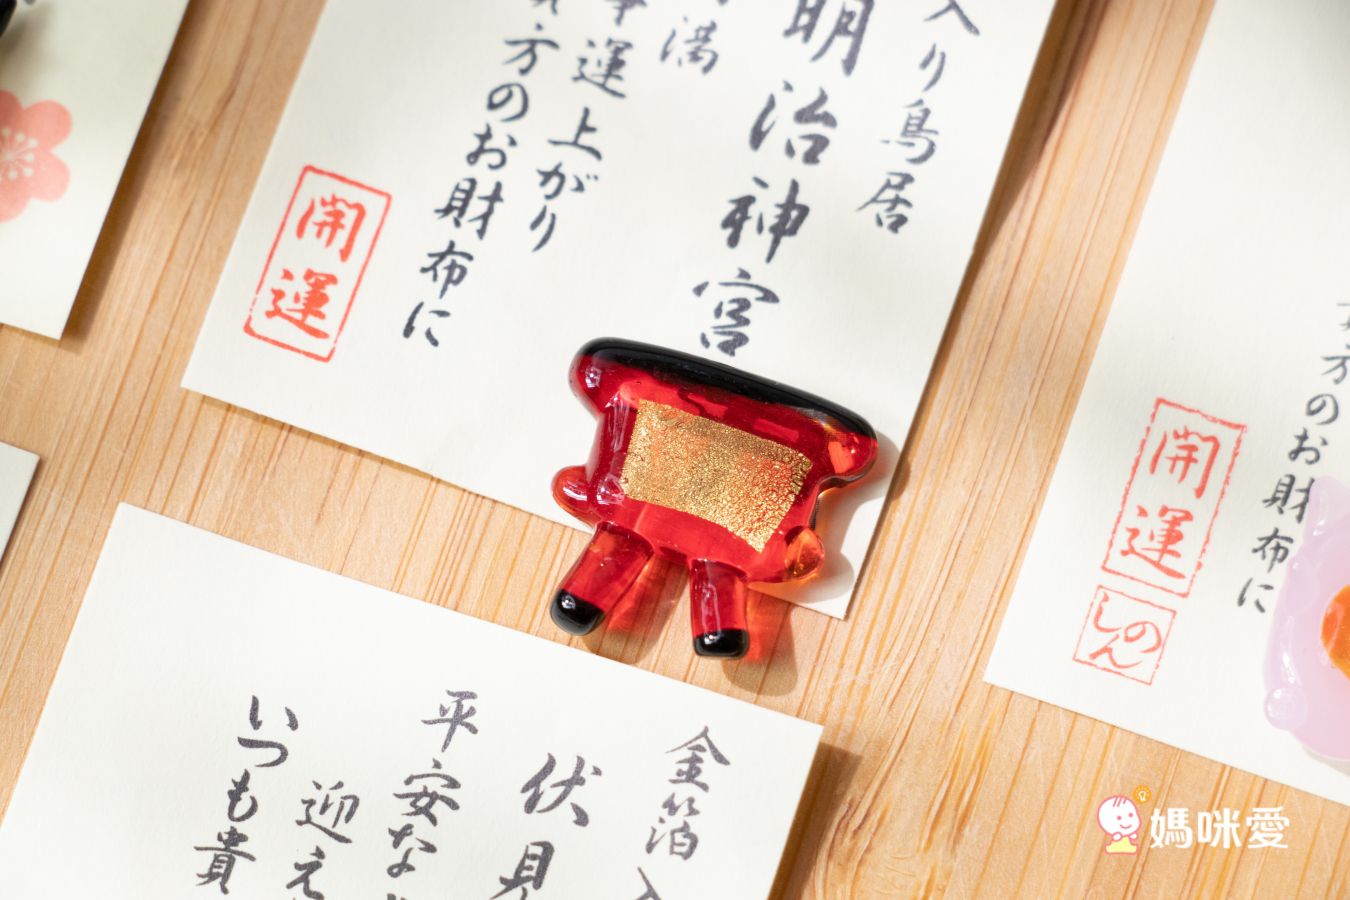 入り鳥居
明治神宮
満
運上がり
方のお財布に
開運
方のお財布に
開運
しのん
金箔入
伏見
平安な
迎え
いつも貴
媽咪愛